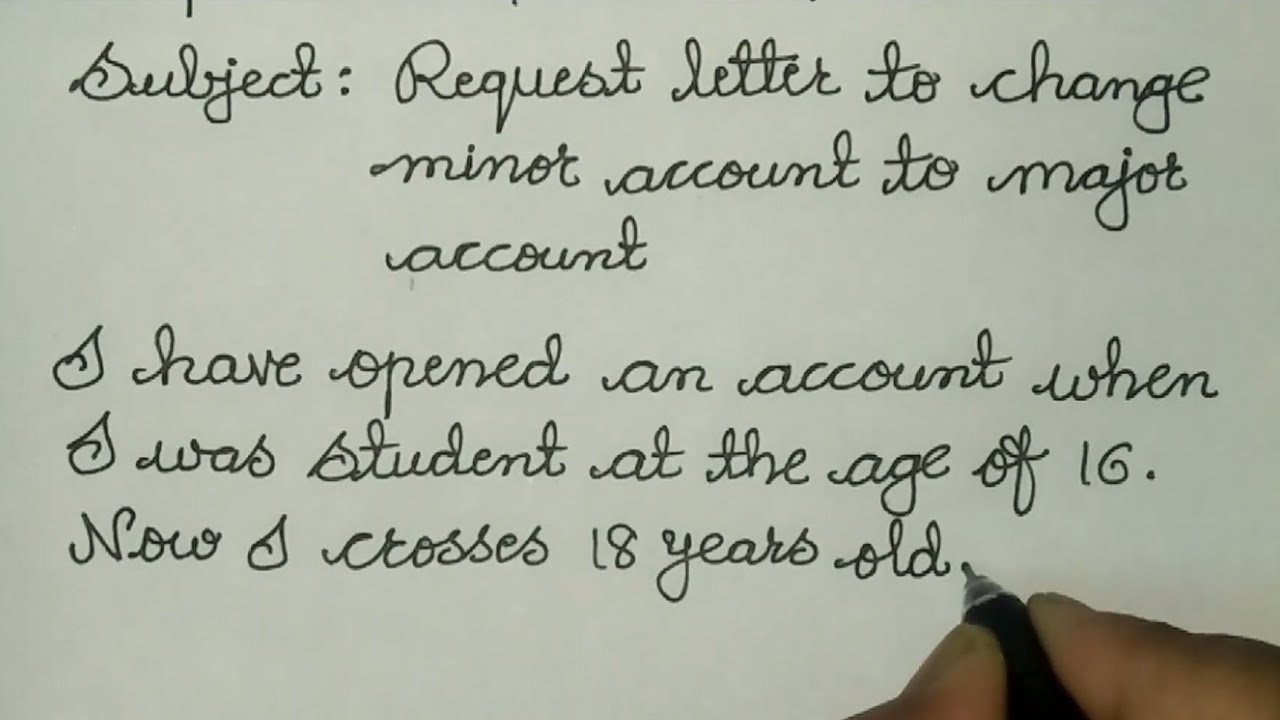 Subject: Request letter to change
minor account to major
account
I have opened an account when
I was student at the age of 16.
Now I crosses 18 years old.